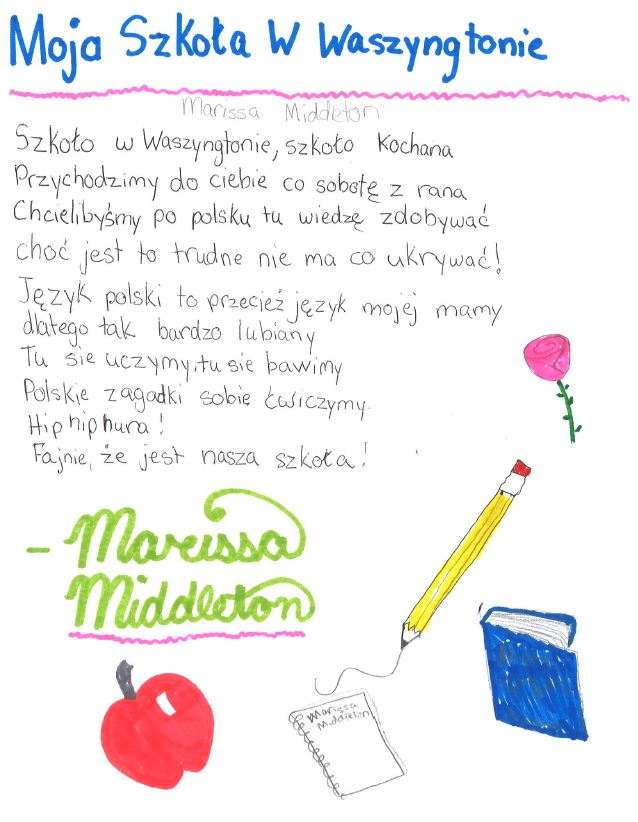 Moja Szkoła W Waszyngtonie
Marissa Middleton
Szkoło w Waszyngtonie, szkoło kochana
Przychodzimy do ciebie co sobotę z rana
Chcielibyśmy po polsku tu wiedzę zdobywać
choć jest to trudne nie ma co ukrywać!
Język polski to przecież język mojej mamy
dlatego tak bardzo lubiany
Tu sie uczymy, tu sie bawimy
Polskie zagadki sobie ćwiczymy.
Hip hip hura!
Fajnie, że jest nasza szkoła!
- Marissa
Middleton
Marissa
Middleton